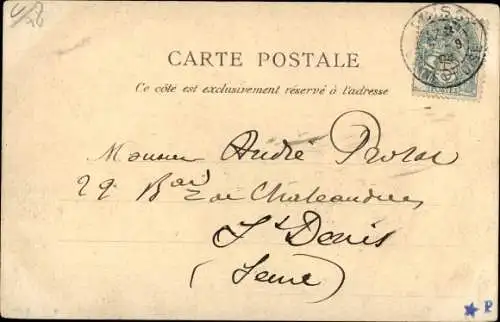 CARTE POSTALE
Ce côté est exclusivement réservé à l'adresse
Monsieur André
29 Bard de Chateaudun
St Denis
(Seine)
P